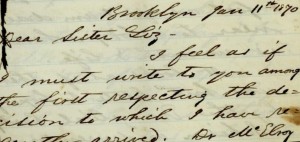 Brooklyn Jan 11th 1870
Dear Sister Liz-
I feel as if
I must write to you among
the first respecting the de-
cision to which I have re-
cently arrived. Dr McElroy